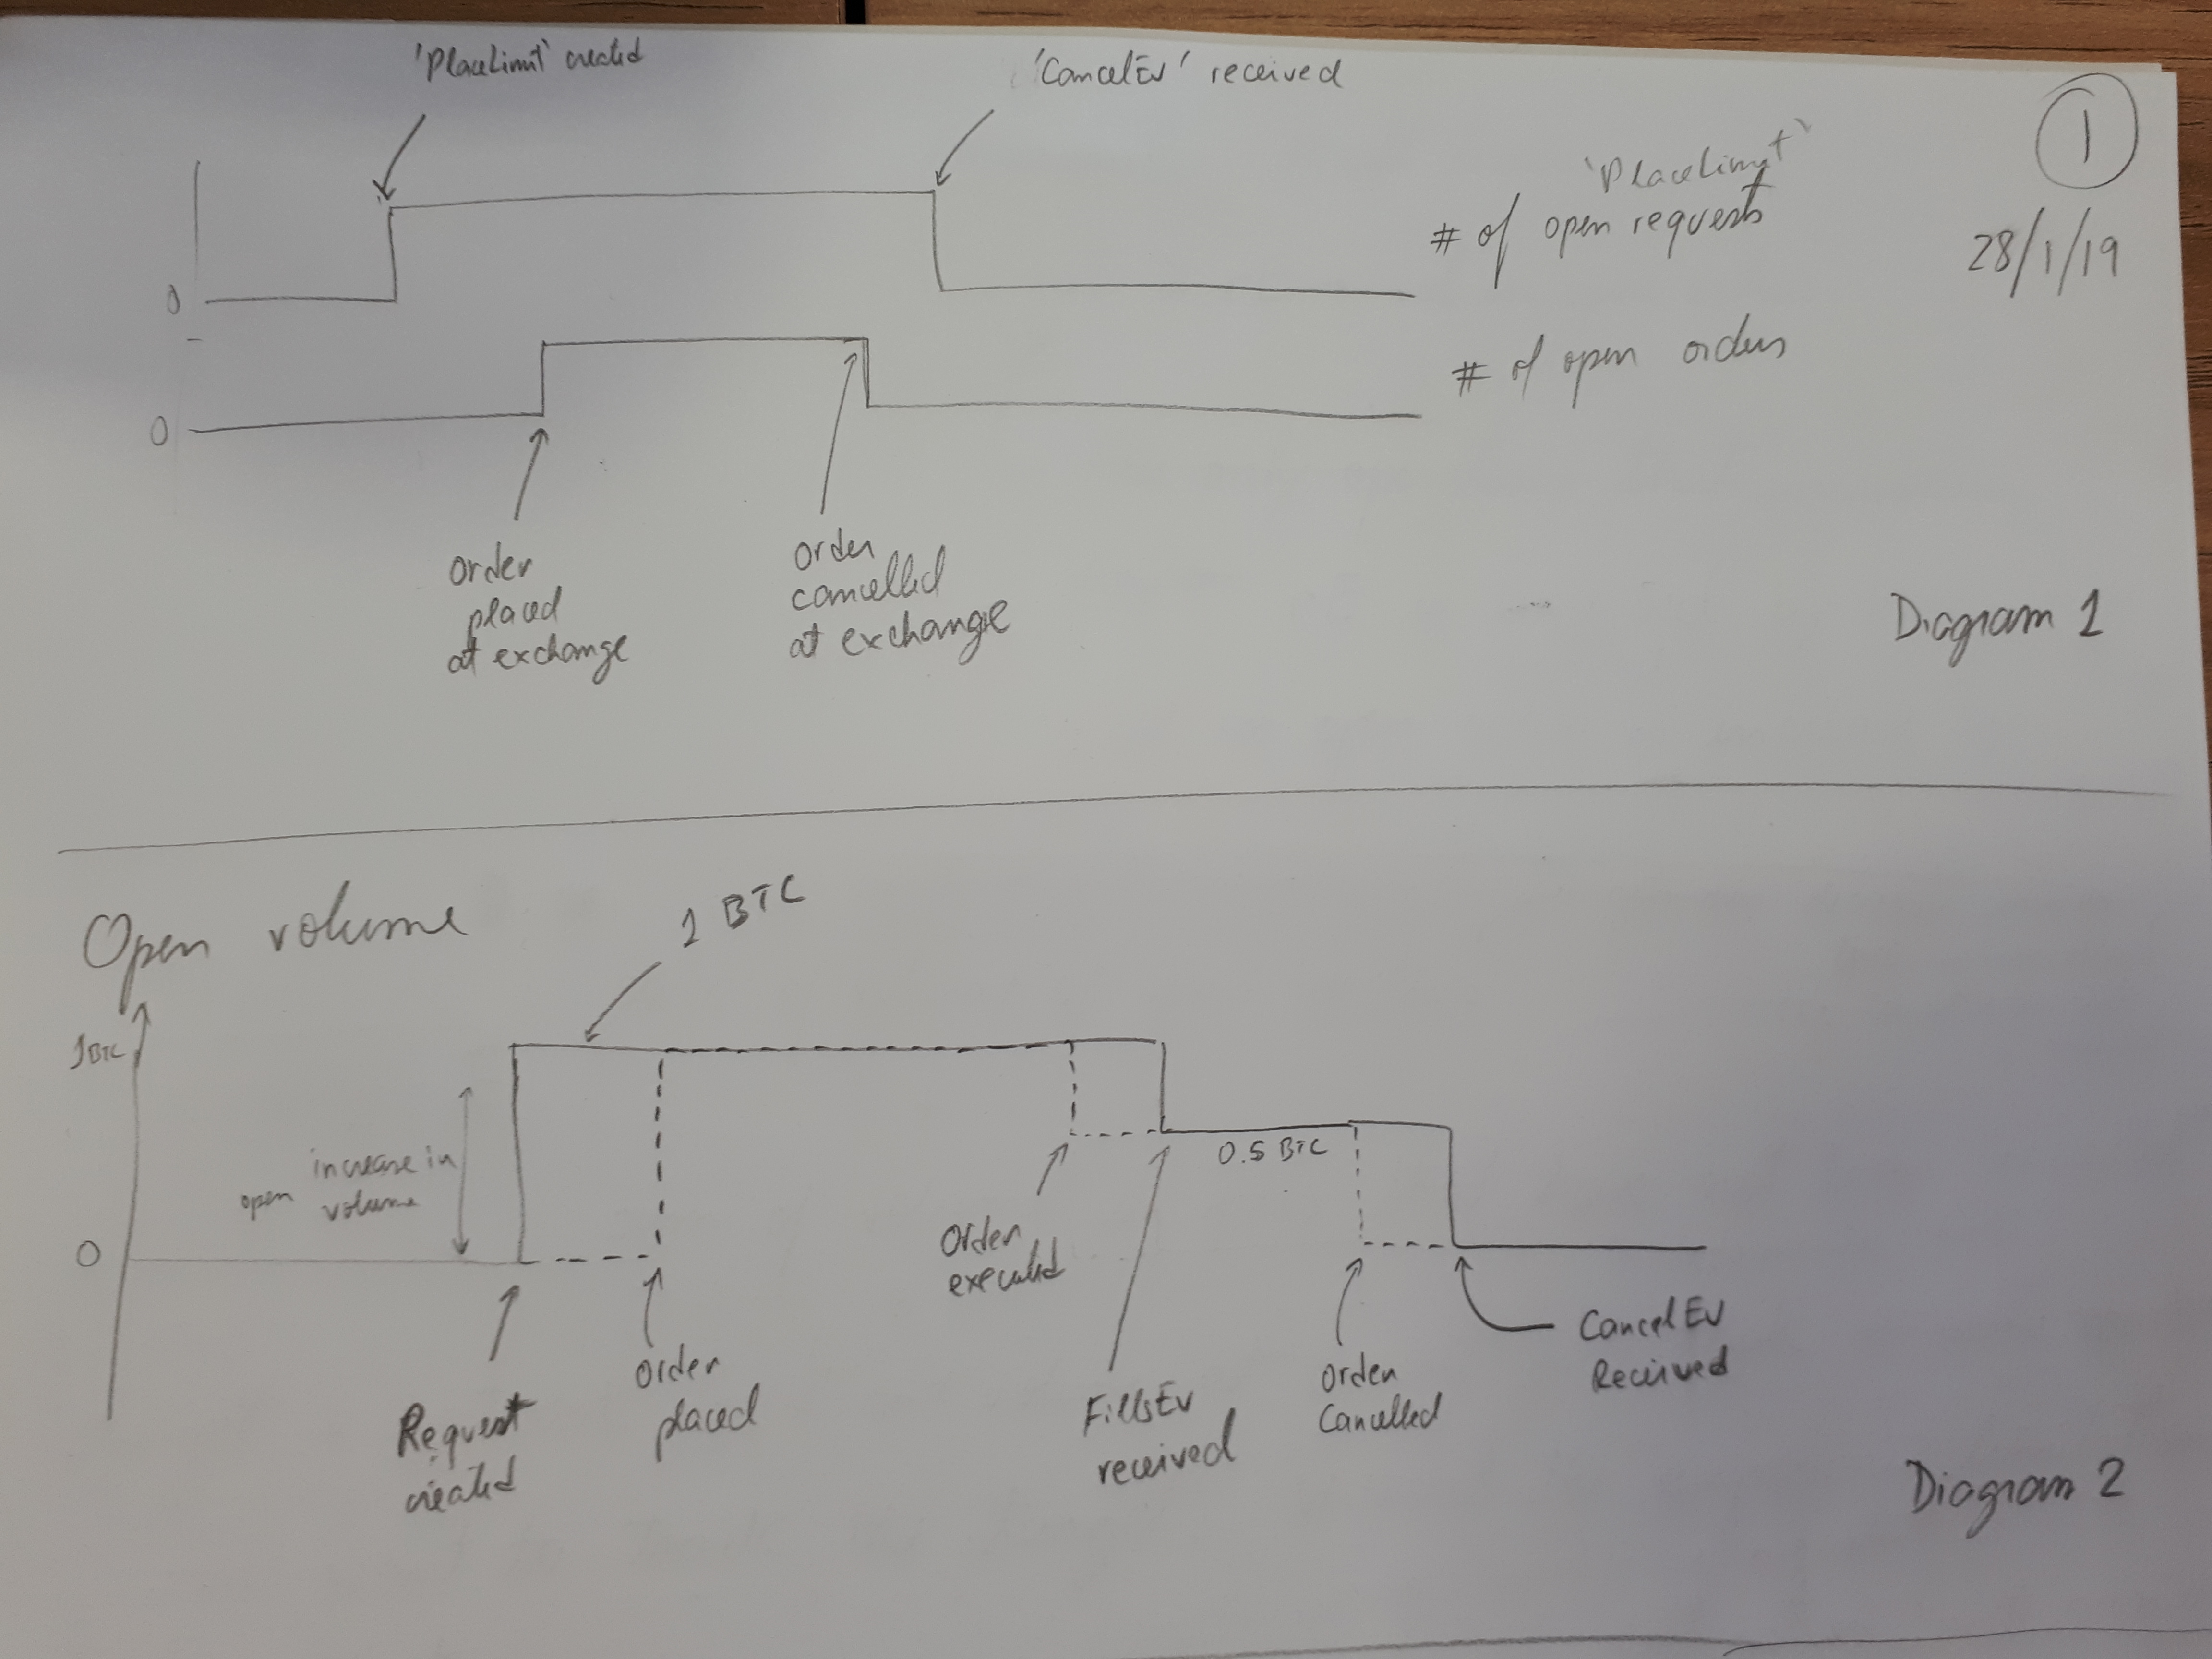 1
28/1/19
'PlaceLimit' created
'CancelEv' received
'PlaceLimit'
# of open requests
0
0
# of open orders
order
placed
at exchange
order
cancelled
at exchange
Diagram 1
Open volume
1 BTC
1 BTC
increase in
open volume
0
0.5 BTC
Request
created
order
placed
order
executed
FillsEv
received
order
cancelled
CancelEv
Received
Diagram 2